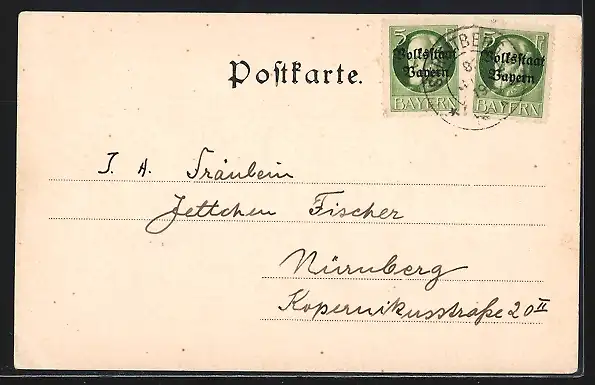 5 P 5 P
Volksstaat Volksstaat
Bayern Bayern
BAYERN BAYERN
Postkarte.
I. H. Fräulein
Jettchen Fischer
Nürnberg
Kopernikusstraße 20 II